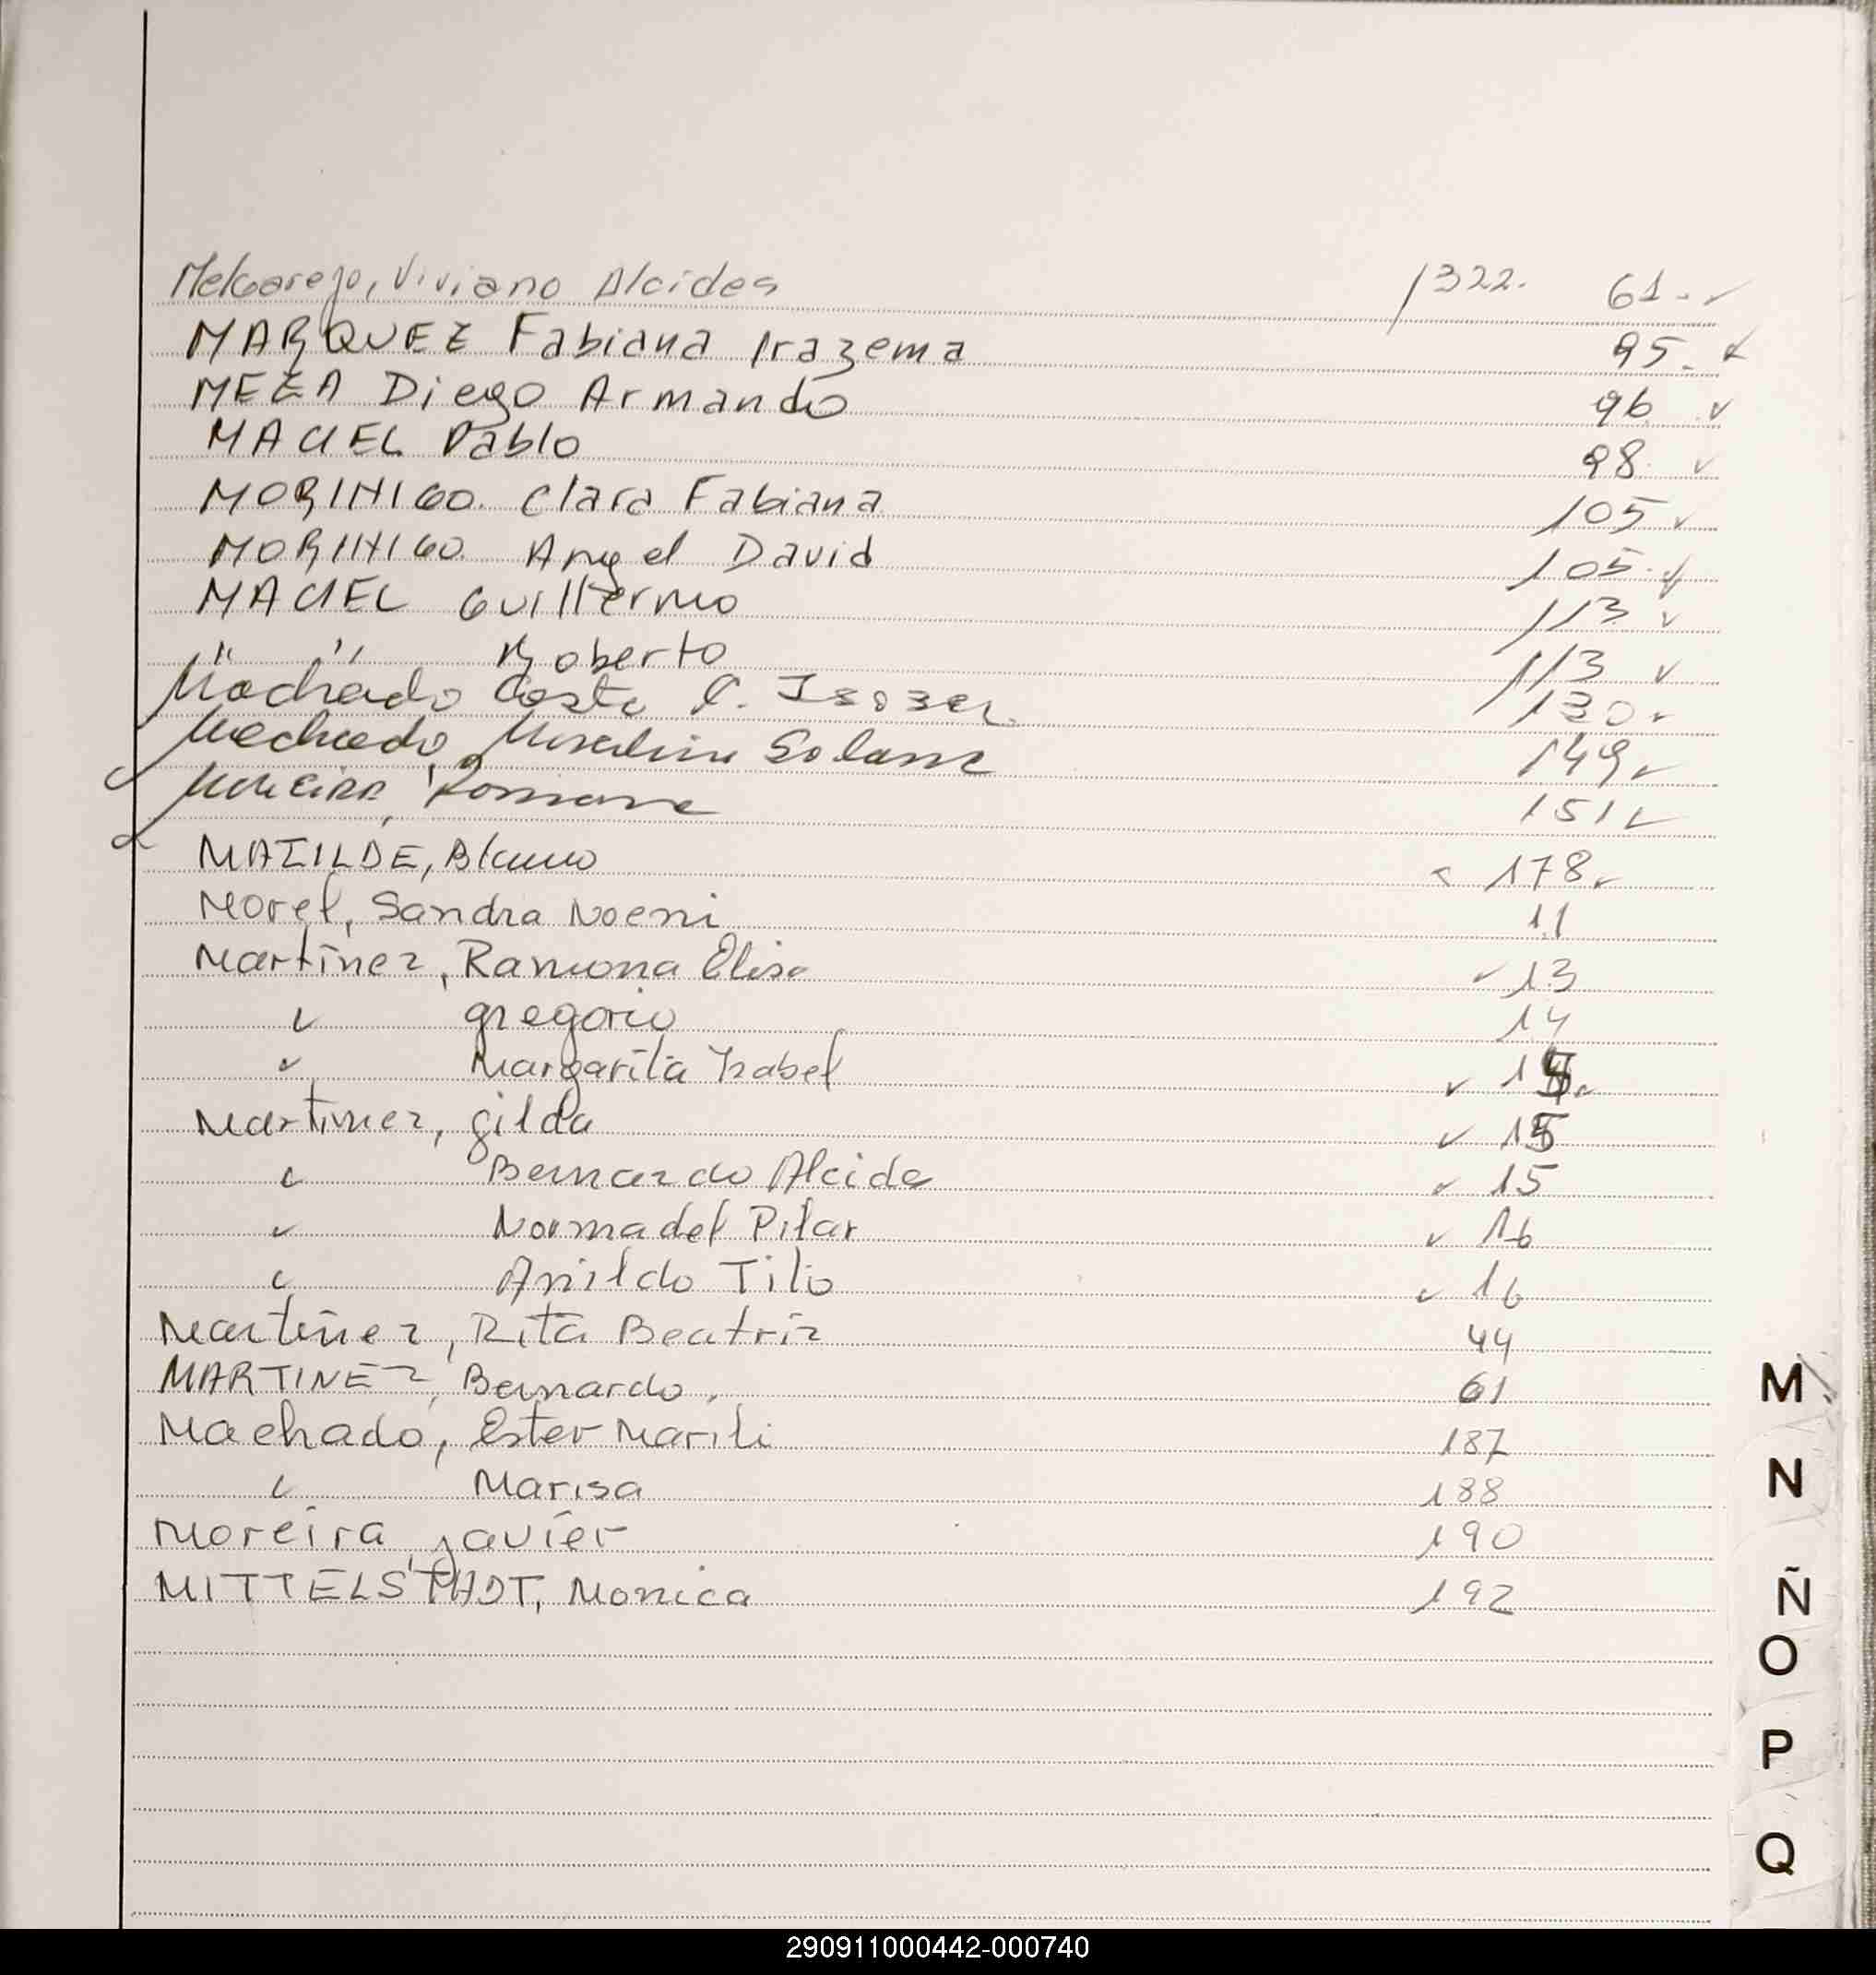 Melgarejo, Viviano Alcides 1322. 61. ✓
MARQUEZ Fabiana Irazema 95. ✓
MEZA Diego Armando 96 ✓
MACIEL Pablo 98. ✓
MORINIGO. Clara Fabiana 105 ✓
MORINIGO. Angel David 105. ✓
MACIEL Guillermo 113 ✓
" " Roberto 113 ✓
Machado Costa 130 ✓
Machado, Solane 149 ✓
Moreira, 151 ✓
MATILDE, 178 ✓
Morel, Sandra Noemi 11
Martinez, Ramona Elisa ✓ 13
" gregorio 14
" Margarita Isabel ✓
Martinez, gilda ✓ 15
" Bernardo Alcide ✓ 15
" Norma del Pilar ✓ 16
" Anildo Tilo ✓ 16
Martinez, Rita Beatriz 44
MARTINEZ, Bernardo. 61
Machado, Ester Marili 187
" Marisa 188
Moreira, Javier 190
MITTELSTADT, Monica 192
M
N
Ñ
O
P
Q
290911000442-000740